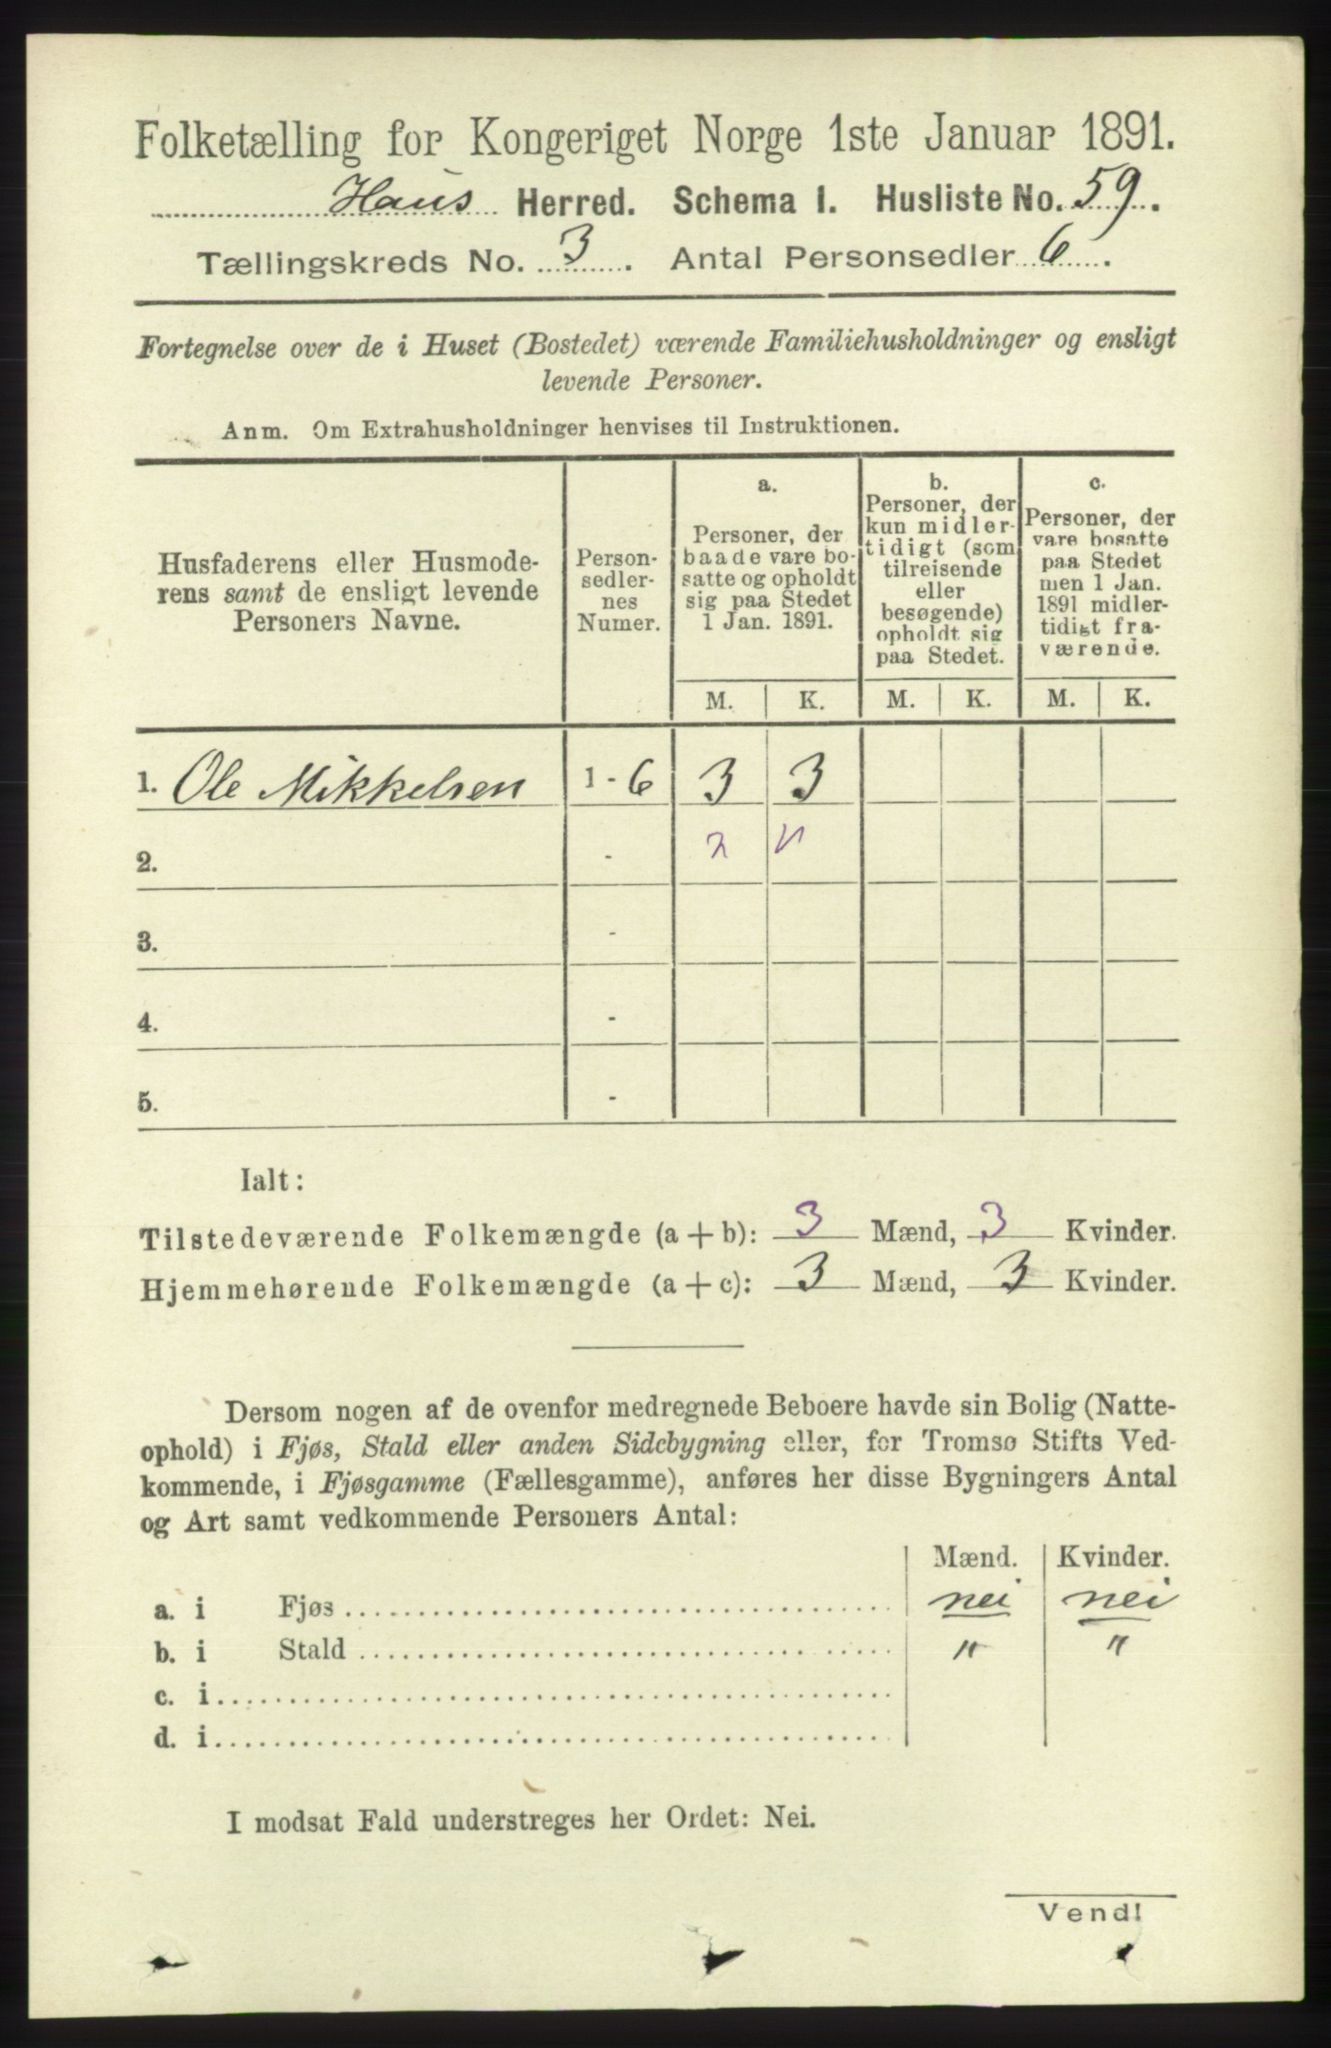 Folketælling for Kongeriget Norge 1ste Januar 1891.
Haus Herred. Schema I. Husliste No. 59.
Tællingskreds No. 3. Antal Personsedler 6.
Fortegnelse over de i Huset (Bostedet) værende Familiehusholdninger og ensligt
levende Personer.
Anm. Om Extrahusholdninger henvises til Instruktionen.
Husfaderens eller Husmode-
rens samt de ensligt levende
Personers Navne.
Person-
sedler-
nes
Numer.
a.
Personer, der
baade vare bo-
satte og opholdt
sig paa Stedet
1 Jan. 1891.
b.
Personer, der
kun midler-
tidigt (som
tilreisende
eller
besøgende)
opholdt sig
paa Stedet.
c.
Personer, der
vare bosatte
paa Stedet
men 1 Jan.
1891 midler-
tidigt fra-
værende.
M. K. M. K. M. K.
1. Ole Mikkelsen 1 - 6 3 3
2. -
3. -
4. -
5. -
Ialt:
Tilstedeværende Folkemængde (a + b): 3 Mænd, 3 Kvinder.
Hjemmehørende Folkemængde (a + c): 3 Mænd, 3 Kvinder.
Dersom nogen af de ovenfor medregnede Beboere havde sin Bolig (Natte-
ophold) i Fjøs, Stald eller anden Sidebygning eller, for Tromsø Stifts Ved-
kommende, i Fjøsgamme (Fællesgamme), anføres her disse Bygningers Antal
og Art samt vedkommende Personers Antal:
Mænd. Kvinder.
a. i Fjøs nei nei
b. i Stald " "
c. i
d. i
I modsat Fald understreges her Ordet: Nei.
Vend!